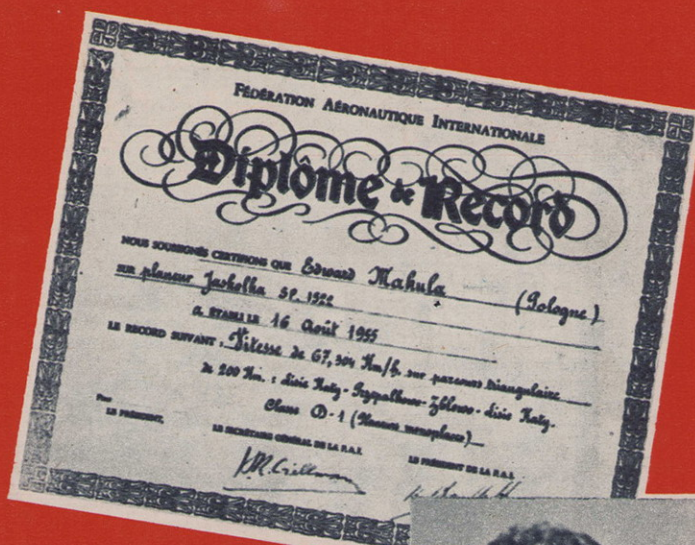 FÉDÉRATION AÉRONAUTIQUE INTERNATIONALE
Diplôme de Record
NOUS SOUSSIGNÉS CERTIFIONS QUE Edward Makula (Pologne)
sur planeur Jaskolka SP. 1522
A ÉTABLI LE 16 Août 1955
LE RECORD SUIVANT : Vitesse de 67,304 Km/h. sur parcours triangulaire
de 200 Km. : Lisie Katy - Przypalkowo - Zblewo - Lisie Katy.
Classe D-1 (Planeurs monoplaces)
Pour
LE PRÉSIDENT,
LE SECRÉTAIRE GÉNÉRAL DE LA F.A.I.
LE PRÉSIDENT DE LA F.A.I.